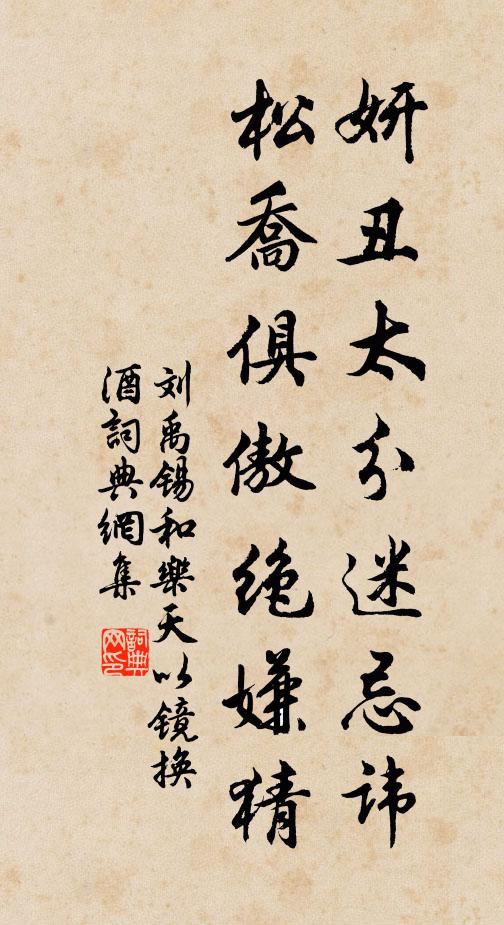 妍丑太分迷忌讳
松喬俱傲绝嫌猜
刘禹锡和樂天以镜换
酒詞典網集
詞典
网印